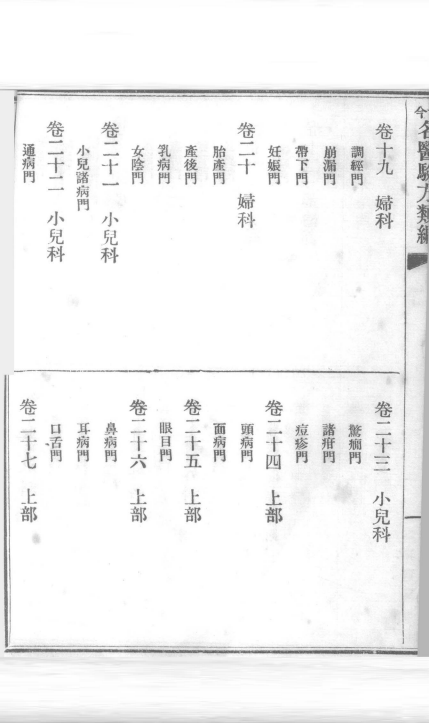 今名醫驗方類編
卷十九　婦科
調經門
崩漏門
帶下門
妊娠門
卷二十　婦科
胎產門
產後門
乳病門
女陰門
卷二十一　小兒科
小兒諸病門
卷二十二　小兒科
通病門
卷二十三　小兒科
驚癇門
諸疳門
痘疹門
卷二十四　上部
頭病門
面病門
卷二十五　上部
眼目門
卷二十六　上部
鼻病門
耳病門
口舌門
卷二十七　上部